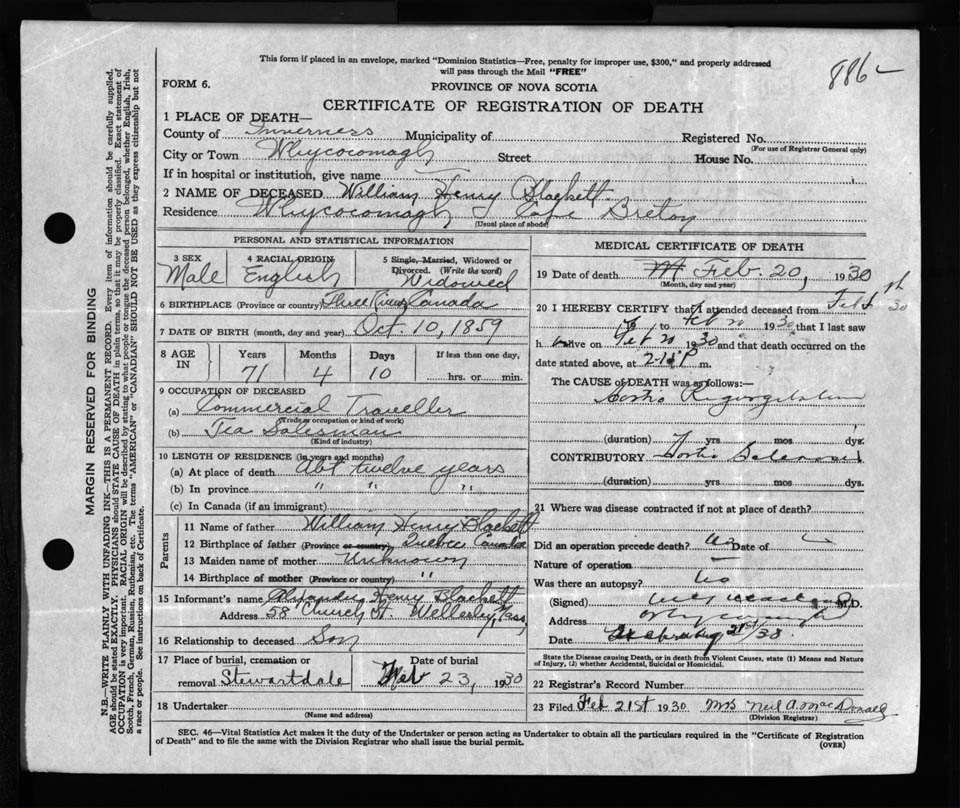 This form if placed in an envelope, marked "Dominion Statistics—Free, penalty for improper use, $300," and properly addressed
will pass through the Mail "FREE"
886
FORM 6.
PROVINCE OF NOVA SCOTIA
CERTIFICATE OF REGISTRATION OF DEATH
1 PLACE OF DEATH—
County of Inverness Municipality of Registered No.
(For use of Registrar General only)
City or Town Whycocomagh Street House No.
If in hospital or institution, give name
2 NAME OF DECEASED William Henry Blackett
Residence Whycocomagh Cape Breton
(Usual place of abode)
PERSONAL AND STATISTICAL INFORMATION
3 SEX
Male
4 RACIAL ORIGIN
English
5 Single, Married, Widowed or
Divorced. (Write the word)
Widowed
6 BIRTHPLACE (Province or country) Three Rivers Canada
7 DATE OF BIRTH (month, day and year) Oct 10, 1859
8 AGE IN
Years Months Days If less than one day,
71 4 10 hrs. or min.
9 OCCUPATION OF DECEASED
(a) Commercial Traveller
(Trade or occupation or kind of work)
(b) Tea Salesman
(Kind of industry)
10 LENGTH OF RESIDENCE (in years and months)
(a) At place of death Abt twelve years
(b) In province " " "
(c) In Canada (if an immigrant)
Parents
11 Name of father William Henry Blackett
12 Birthplace of father (Province or country) Quebec Canada
13 Maiden name of mother Unknown
14 Birthplace of mother (Province or country) "
15 Informant's name Alexander Henry Blackett
Address 58 Church St Wellesley, Mass,
16 Relationship to deceased Son
17 Place of burial, cremation or
removal Stewartdale
Date of burial
Feb 23, 1930
18 Undertaker
(Name and address)
MEDICAL CERTIFICATE OF DEATH
19 Date of death Feb. 20, 1930
(Month, day and year)
20 I HEREBY CERTIFY that I attended deceased from Feb
th
30
to Feb 20 1930 that I last saw
h alive on Feb 20 1930 and that death occurred on the
date stated above, at P m.
The CAUSE of DEATH was as follows:—
Aortic Regurgitation
(duration) yrs mos dys.
CONTRIBUTORY Aortic
(duration) yrs mos dys.
21 Where was disease contracted if not at place of death?
Did an operation precede death? No Date of
Nature of operation
Was there an autopsy? No
(Signed) M.D.
Address Whycocomagh
Date February 21st/30.
State the Disease causing Death, or in death from Violent Causes, state (1) Means and Nature
of Injury, (2) whether Accidental, Suicidal or Homicidal.
22 Registrar's Record Number
23 Filed Feb 21st 1930 Mrs Neil A. MacDonald
(Division Registrar)
SEC. 46—Vital Statistics Act makes it the duty of the Undertaker or person acting as Undertaker to obtain all the particulars required in the "Certificate of Registration
of Death" and to file the same with the Division Registrar who shall issue the burial permit.
(OVER)
MARGIN RESERVED FOR BINDING
N.B.—WRITE PLAINLY WITH UNFADING INK—THIS IS A PERMANENT RECORD. Every item of information should be carefully supplied.
AGE should be stated EXACTLY. PHYSICIANS should STATE CAUSE OF DEATH in plain terms, so that it may be properly classified. Exact statement of
OCCUPATION is very important. RACIAL ORIGIN will be described by stating to what people or tongue the deceased person belonged, whether English, Irish,
Scotch, French, German, Russian, Ruthenian, etc. The terms "AMERICAN" or "CANADIAN" SHOULD NOT BE USED as they express citizenship but not
a race or people. See instructions on back of Certificate.